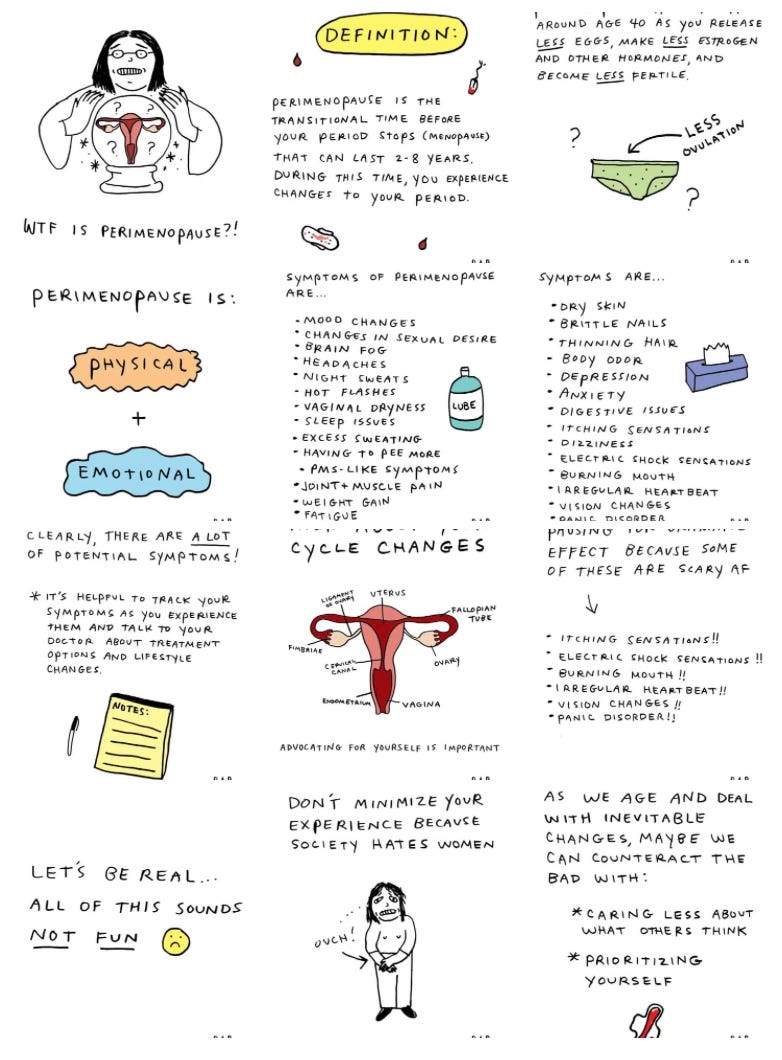 WTF IS PERIMENOPAUSE?!
DEFINITION:
PERIMENOPAUSE IS THE
TRANSITIONAL TIME BEFORE
YOUR PERIOD STOPS (MENOPAUSE)
THAT CAN LAST 2-8 YEARS.
DURING THIS TIME, YOU EXPERIENCE
CHANGES TO YOUR PERIOD.
AROUND AGE 40 AS YOU RELEASE
LESS EGGS, MAKE LESS ESTROGEN
AND OTHER HORMONES, AND
BECOME LESS FERTILE.
LESS
OVULATION
?
?
PERIMENOPAUSE IS:
PHYSICAL
+
EMOTIONAL
SYMPTOMS OF PERIMENOPAUSE
ARE...
• MOOD CHANGES
• CHANGES IN SEXUAL DESIRE
• BRAIN FOG
• HEADACHES
• NIGHT SWEATS
• HOT FLASHES
• VAGINAL DRYNESS
• SLEEP ISSUES
• EXCESS SWEATING
• HAVING TO PEE MORE
• PMS-LIKE SYMPTOMS
• JOINT+MUSCLE PAIN
• WEIGHT GAIN
• FATIGUE
LUBE
SYMPTOMS ARE...
• DRY SKIN
• BRITTLE NAILS
• THINNING HAIR
• BODY ODOR
• DEPRESSION
• ANXIETY
• DIGESTIVE ISSUES
• ITCHING SENSATIONS
• DIZZINESS
• ELECTRIC SHOCK SENSATIONS
• BURNING MOUTH
• IRREGULAR HEARTBEAT
• VISION CHANGES
• PANIC DISORDER
CLEARLY, THERE ARE A LOT
OF POTENTIAL SYMPTOMS!
* IT'S HELPFUL TO TRACK YOUR
SYMPTOMS AS YOU EXPERIENCE
THEM AND TALK TO YOUR
DOCTOR ABOUT TREATMENT
OPTIONS AND LIFESTYLE
CHANGES.
NOTES:
CYCLE CHANGES
LIGAMENT
OF OVARY
UTERUS
FALLOPIAN
TUBE
FIMBRIAE
CERVICAL
CANAL
OVARY
ENDOMETRIUM
VAGINA
ADVOCATING FOR YOURSELF IS IMPORTANT
PAUSING FOR DRAMATIC
EFFECT BECAUSE SOME
OF THESE ARE SCARY AF
• ITCHING SENSATIONS!!
• ELECTRIC SHOCK SENSATIONS!!
• BURNING MOUTH!!
• IRREGULAR HEARTBEAT!!
• VISION CHANGES!!
• PANIC DISORDER!!
LET'S BE REAL...
ALL OF THIS SOUNDS
NOT FUN
DON'T MINIMIZE YOUR
EXPERIENCE BECAUSE
SOCIETY HATES WOMEN
OUCH!
AS WE AGE AND DEAL
WITH INEVITABLE
CHANGES, MAYBE WE
CAN COUNTERACT THE
BAD WITH:
* CARING LESS ABOUT
WHAT OTHERS THINK
* PRIORITIZING
YOURSELF